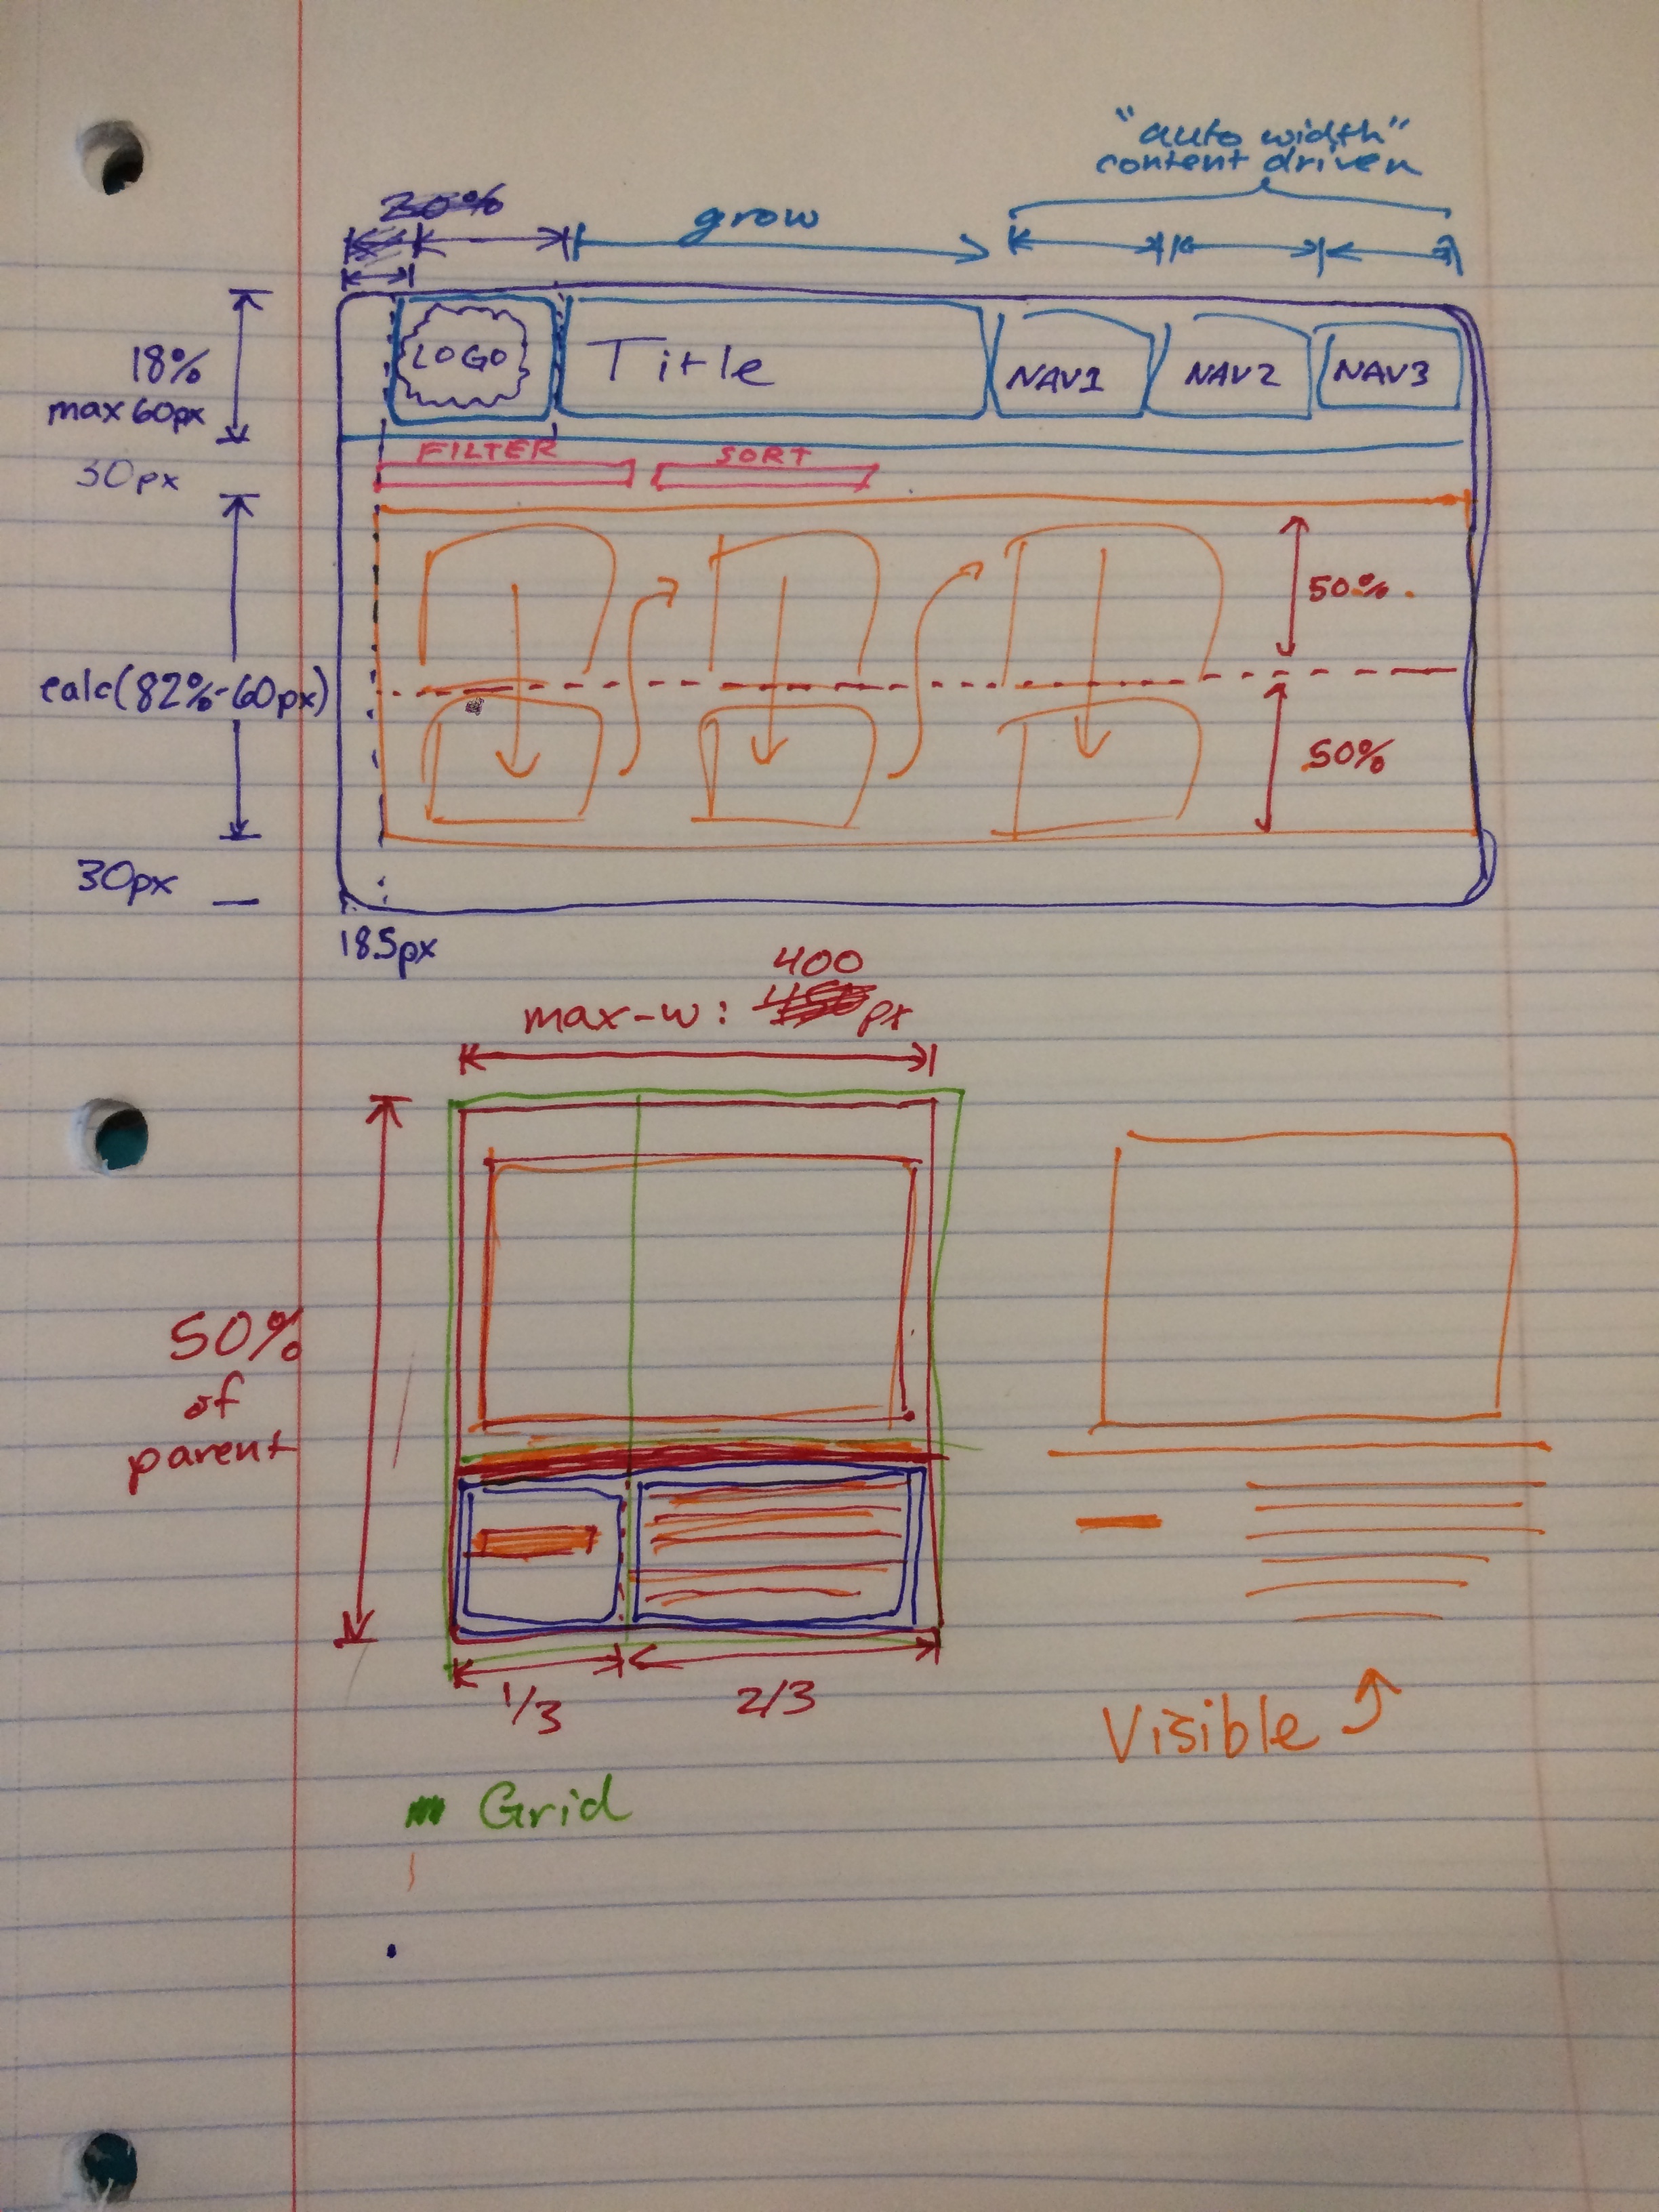 "auto width"
content driven
20%
grow
18%
max 60px
LOGO
Title
NAV1
NAV2
NAV3
30px
FILTER
SORT
50%
calc(82%-60px)
50%
30px
18.5px
400
max-w: 450px
50%
of
parent
1/3
2/3
Visible
Grid